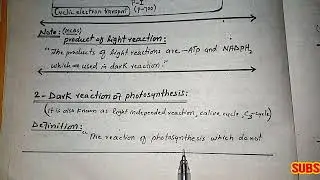 Cyclic electron transport
P-
(P-700)
Note: (MCQs)
product of light reaction:
"The products of light reaction are -ATP and NADPH,
which are used in dark reaction"
2- Dark reaction of photosynthesis:
(it is also known as light independed reaction, calive cycle, C3-cycle)
Definition:
"The reaction of photosynthesis which do not
SUBS